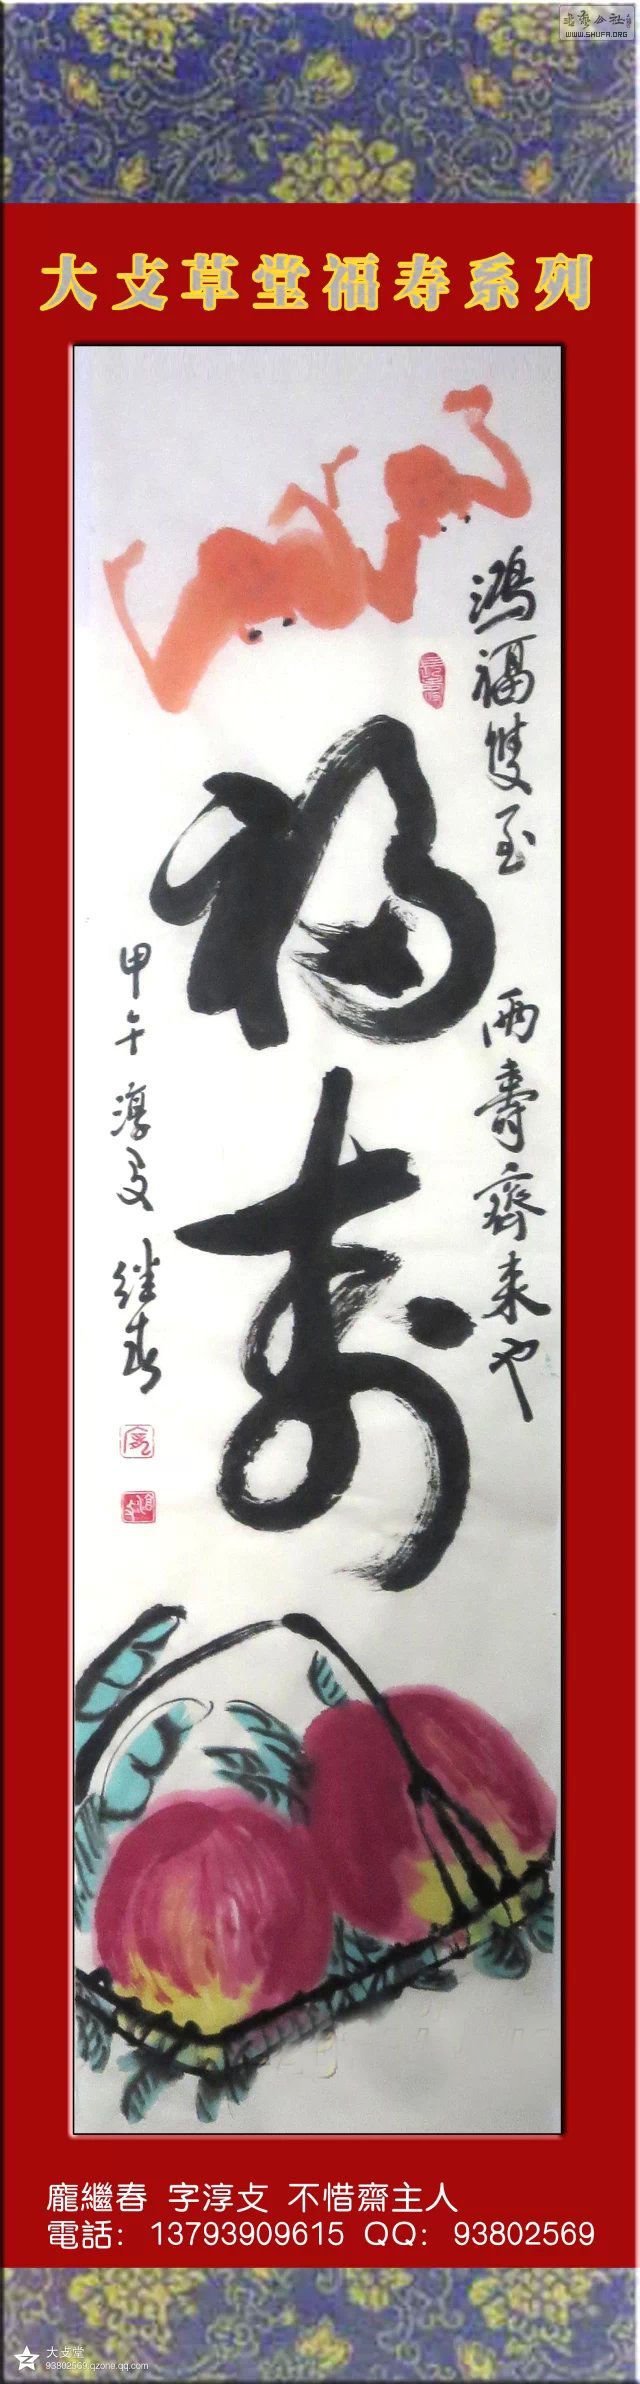 書法公社
WWW.SHUFA.ORG
大攴草堂福寿系列
鴻福雙至 兩壽齊来也
福壽
甲午 淳攴 继春
龐繼春 字淳攴 不惜齋主人
電話：13793909615 QQ：93802569
大攴堂
93802569.qzone.qq.com